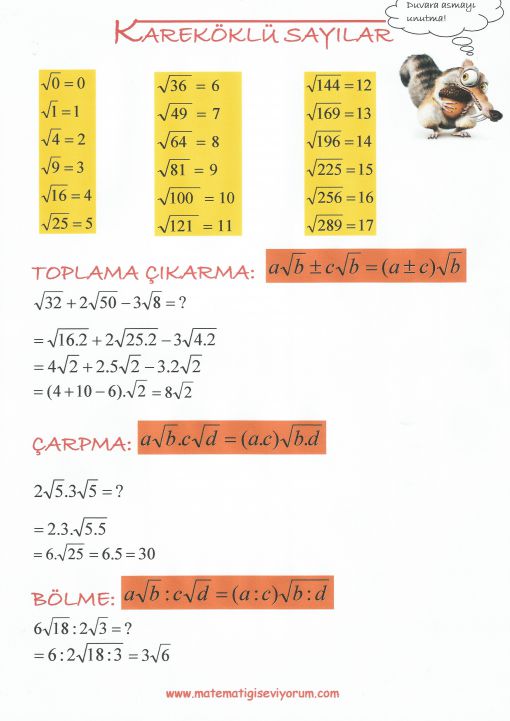 Duvara asmayı
unutma!
KAREKÖKLÜ SAYILAR
√0 = 0
√1 = 1
√4 = 2
√9 = 3
√16 = 4
√25 = 5
√36 = 6
√49 = 7
√64 = 8
√81 = 9
√100 = 10
√121 = 11
√144 = 12
√169 = 13
√196 = 14
√225 = 15
√256 = 16
√289 = 17
TOPLAMA ÇIKARMA: a√b ± c√b = (a ± c)√b
√32 + 2√50 − 3√8 = ?
= √16.2 + 2√25.2 − 3√4.2
= 4√2 + 2.5√2 − 3.2√2
= (4 + 10 − 6).√2 = 8√2
ÇARPMA: a√b.c√d = (a.c)√b.d
2√5.3√5 = ?
= 2.3.√5.5
= 6.√25 = 6.5 = 30
BÖLME: a√b : c√d = (a : c)√b : d
6√18 : 2√3 = ?
= 6 : 2√18 : 3 = 3√6
www.matematigiseviyorum.com